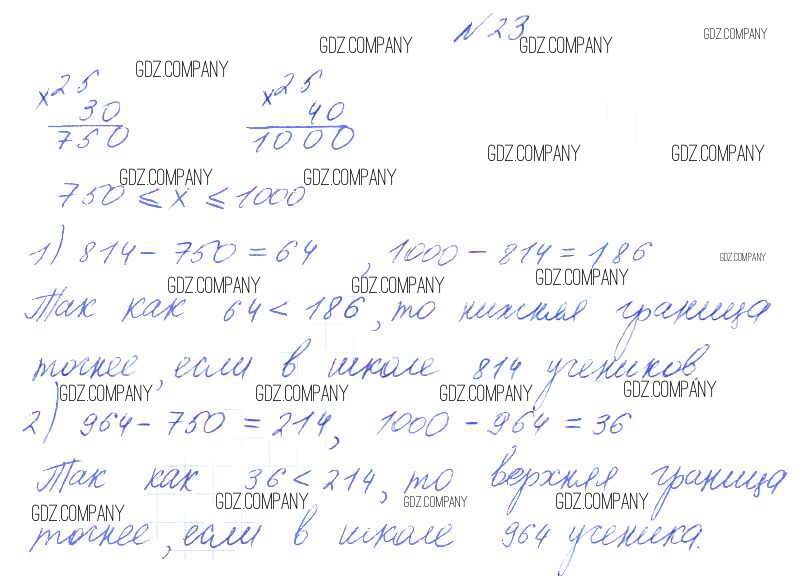 № 23
×25 ×25
30 40
750 1000
750 ⩽ x ⩽ 1000
1) 814 - 750 = 64 , 1000 - 814 = 186
Так как 64 < 186, то нижняя граница
точнее, если в школе 814 учеников.
2) 964 - 750 = 214, 1000 - 964 = 36
Так как 36 < 214, то верхняя граница
точнее, если в школе 964 ученика.
GDZ.COMPANY GDZ.COMPANY GDZ.COMPANY
GDZ.COMPANY
GDZ.COMPANY GDZ.COMPANY
GDZ.COMPANY GDZ.COMPANY
GDZ.COMPANY
GDZ.COMPANY GDZ.COMPANY GDZ.COMPANY
GDZ.COMPANY GDZ.COMPANY GDZ.COMPANY GDZ.COMPANY
GDZ.COMPANY GDZ.COMPANY GDZ.COMPANY GDZ.COMPANY